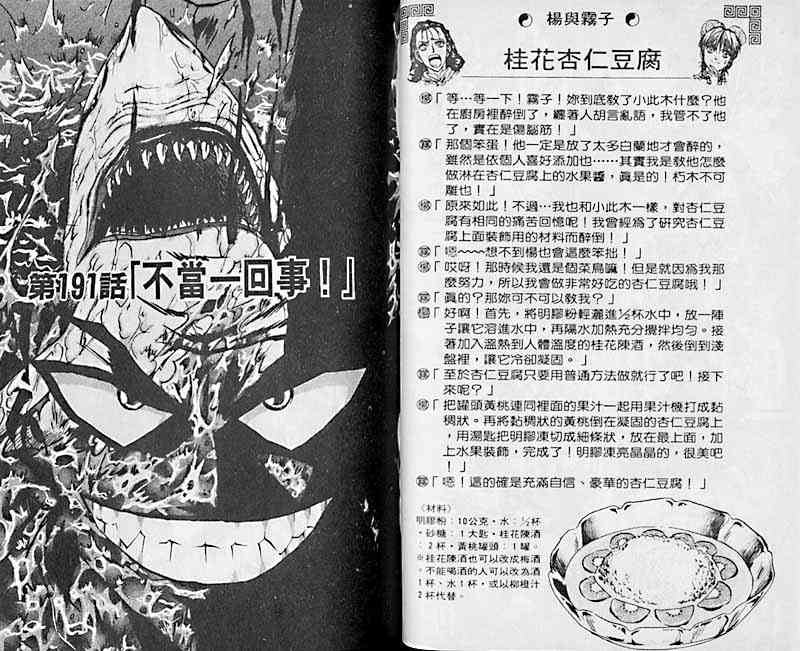 第191話「不當一回事！」
楊與霧子
桂花杏仁豆腐
楊「等…等一下！霧子！妳到底教了小此木什麼？他
在廚房裡醉倒了，纏著人胡言亂語，我管不了他
了，實在是傷腦筋！」
霧「那個笨蛋！他一定是放了太多白蘭地才會醉的，
雖然是依個人喜好添加也……其實我是教他怎麼
做淋在杏仁豆腐上的水果醬，真是的！朽木不可
雕也！」
楊「原來如此！不過…我也和小此木一樣，對杏仁豆
腐有相同的痛苦回憶呢！我曾經為了研究杏仁豆
腐上面裝飾用的材料而醉倒！」
霧「嗯～～～想不到楊也會這麼笨拙！」
楊「哎呀！那時候我還是個菜鳥嘛！但是就因為我那
麼努力，所以我會做非常好吃的杏仁豆腐哦！」
霧「真的？那妳可不可以教我？」
楊「好啊！首先，將明膠粉輕灑進½杯水中，放一陣
子讓它溶進水中，再隔水加熱充分攪拌均勻。接
著加入溫熱到人體溫度的桂花陳酒，然後倒到淺
盤裡，讓它冷卻凝固。」
霧「至於杏仁豆腐只要用普通方法做就行了吧！接下
來呢？」
楊「把罐頭黃桃連同裡面的果汁一起用果汁機打成黏
稠狀。再將黏稠狀的黃桃倒在凝固的杏仁豆腐上
，用湯匙把明膠凍切成細條狀，放在最上面，加
上水果裝飾，完成了！明膠凍亮晶晶的，很美吧
！」
霧「嗯！這的確是充滿自信、豪華的杏仁豆腐！」
〈材料〉
明膠粉：10公克・水：½杯
・砂糖：1大匙・桂花陳酒
：2杯・黃桃罐頭：1罐。
※桂花陳酒也可以改成梅酒
。不能喝酒的人可以改為酒
1杯、水1杯，或以柳橙汁
2杯代替。